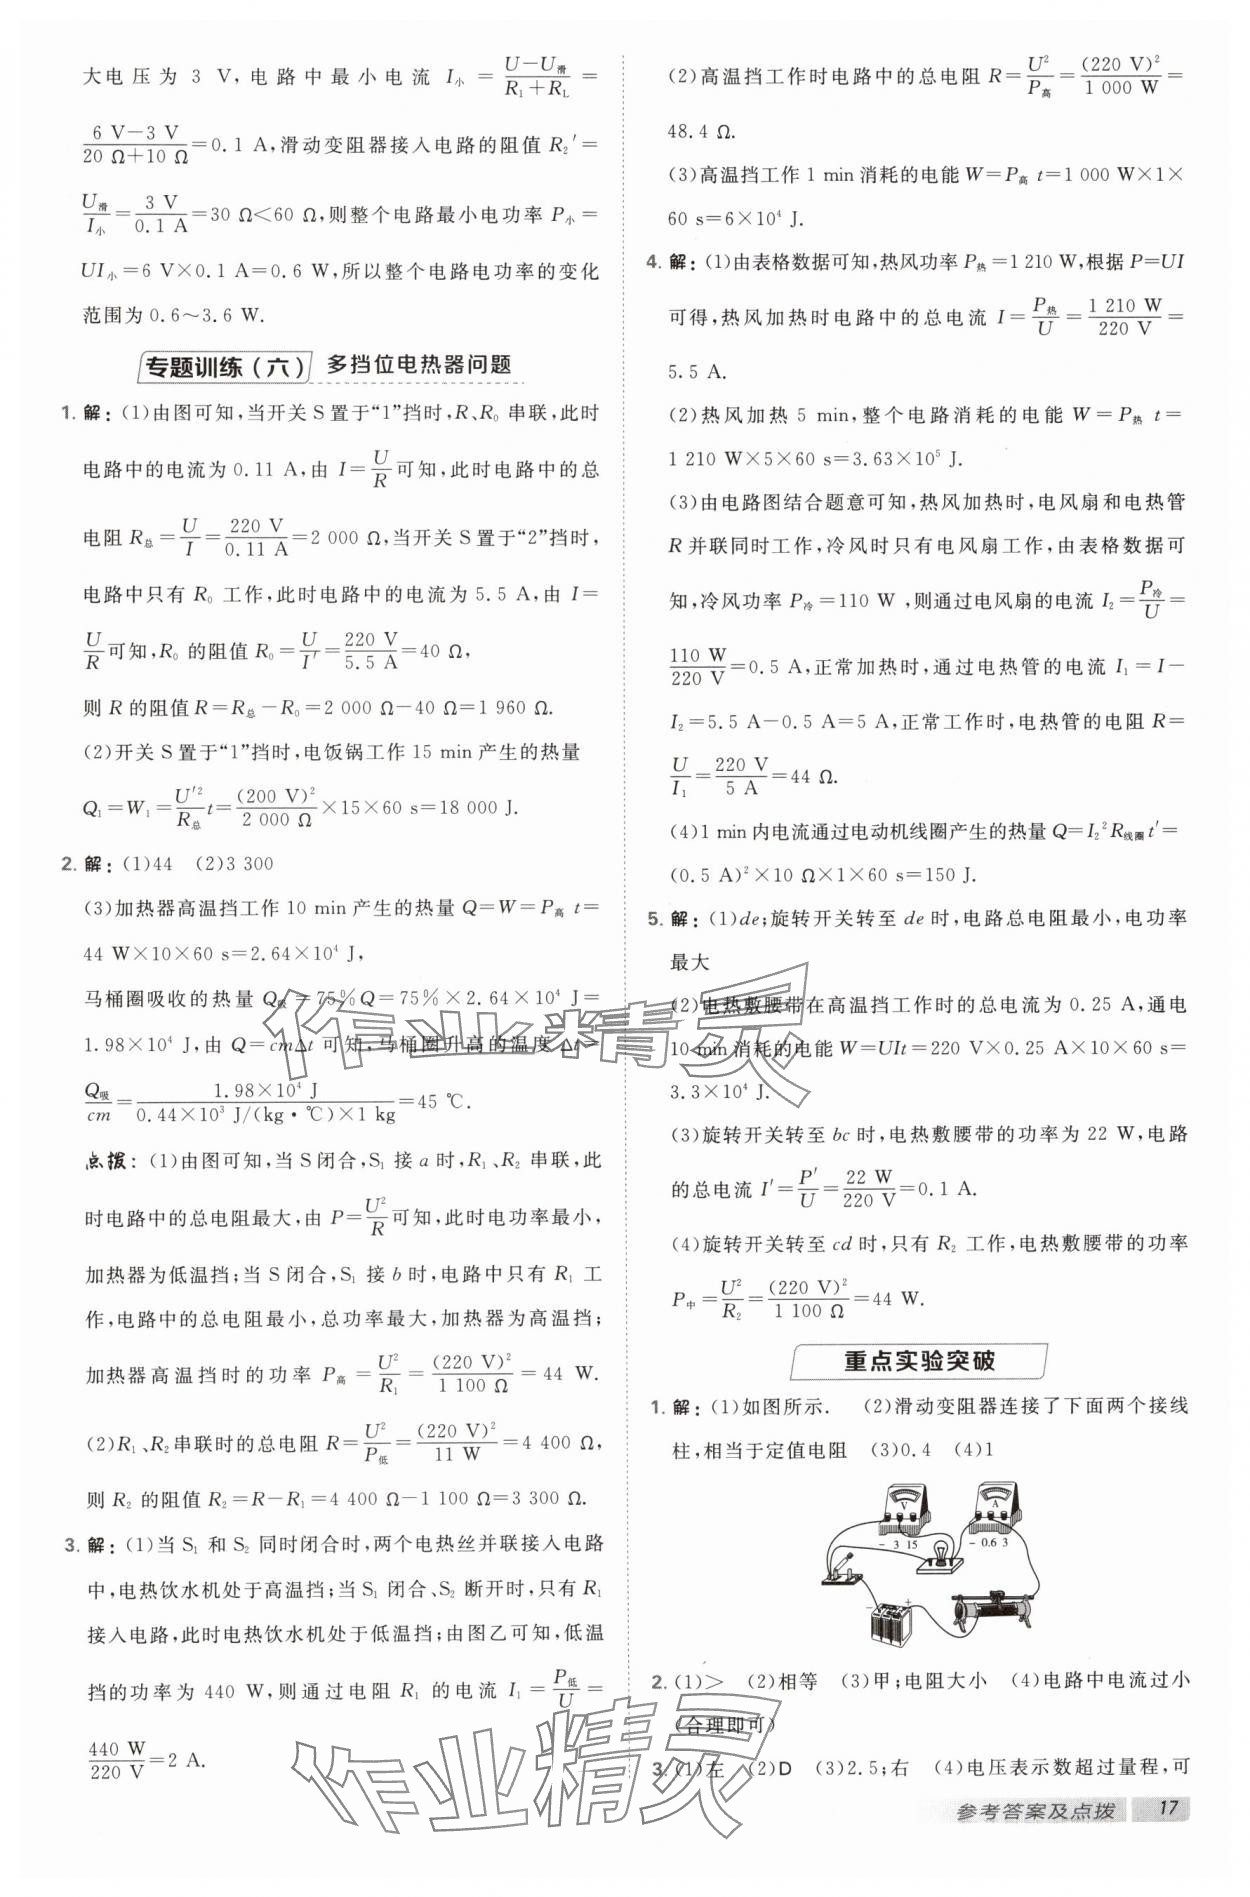 大电压为 3 V,电路中最小电流 I小 = (U-U滑)/(R₁+RL) =
(6 V-3 V)/(20 Ω+10 Ω)=0.1 A,滑动变阻器接入电路的阻值 R₂′=
U滑/I小=3 V/0.1 A=30 Ω<60 Ω,则整个电路最小电功率 P小=
UI小=6 V×0.1 A=0.6 W,所以整个电路电功率的变化
范围为 0.6~3.6 W.
专题训练(六) 多挡位电热器问题
1. 解:(1)由图可知,当开关 S 置于“1”挡时,R、R₀ 串联,此时
电路中的电流为 0.11 A,由 I=U/R可知,此时电路中的总
电阻 R总=U/I=220 V/0.11 A=2 000 Ω,当开关 S 置于“2”挡时,
电路中只有 R₀ 工作,此时电路中的电流为 5.5 A,由 I=
U/R可知,R₀ 的阻值 R₀=U/I′=220 V/5.5 A=40 Ω,
则 R 的阻值 R=R总-R₀=2 000 Ω-40 Ω=1 960 Ω.
(2)开关 S 置于“1”挡时,电饭锅工作 15 min 产生的热量
Q₁=W₁=U′²/R总 t=(200 V)²/2 000 Ω×15×60 s=18 000 J.
2. 解:(1)44 (2)3 300
(3)加热器高温挡工作 10 min 产生的热量 Q=W=P高 t=
44 W×10×60 s=2.64×10⁴ J,
马桶圈吸收的热量 Q吸=75%Q=75%×2.64×10⁴ J=
1.98×10⁴ J,由 Q=cmΔt 可知,马桶圈升高的温度 Δt=
Q吸/cm=1.98×10⁴ J/(0.44×10³ J/(kg·℃)×1 kg)=45 ℃.
点拨:(1)由图可知,当 S 闭合,S₁ 接 a 时,R₁、R₂ 串联,此
时电路中的总电阻最大,由 P=U²/R可知,此时电功率最小,
加热器为低温挡;当 S 闭合,S₁ 接 b 时,电路中只有 R₁ 工
作,电路中的总电阻最小,总功率最大,加热器为高温挡;
加热器高温挡时的功率 P高=U²/R₁=(220 V)²/1 100 Ω=44 W.
(2)R₁、R₂串联时的总电阻 R=U²/P低=(220 V)²/11 W=4 400 Ω,
则 R₂ 的阻值 R₂=R-R₁=4 400 Ω-1 100 Ω=3 300 Ω.
3. 解:(1)当 S₁ 和 S₂ 同时闭合时,两个电热丝并联接入电路
中,电热饮水机处于高温挡;当 S₁ 闭合、S₂ 断开时,只有 R₁
接入电路,此时电热饮水机处于低温挡;由图乙可知,低温
挡的功率为 440 W,则通过电阻 R₁ 的电流 I₁=P低/U=
440 W/220 V=2 A.
(2)高温挡工作时电路中的总电阻 R=U²/P高=(220 V)²/1 000 W=
48.4 Ω.
(3)高温挡工作 1 min 消耗的电能 W=P高 t=1 000 W×1×
60 s=6×10⁴ J.
4. 解:(1)由表格数据可知,热风功率 P热=1 210 W,根据 P=UI
可得,热风加热时电路中的总电流 I=P热/U=1 210 W/220 V=
5.5 A.
(2)热风加热 5 min,整个电路消耗的电能 W=P热 t=
1 210 W×5×60 s=3.63×10⁵ J.
(3)由电路图结合题意可知,热风加热时,电风扇和电热管
R 并联同时工作,冷风时只有电风扇工作,由表格数据可
知,冷风功率 P冷=110 W ,则通过电风扇的电流 I₂=P冷/U=
110 W/220 V=0.5 A,正常加热时,通过电热管的电流 I₁=I-
I₂=5.5 A-0.5 A=5 A,正常工作时,电热管的电阻 R=
U/I₁=220 V/5 A=44 Ω.
(4)1 min 内电流通过电动机线圈产生的热量 Q=I₂²R线圈t′=
(0.5 A)²×10 Ω×1×60 s=150 J.
5. 解:(1)de;旋转开关转至 de 时,电路总电阻最小,电功率
最大
(2)电热敷腰带在高温挡工作时的总电流为 0.25 A,通电
10 min消耗的电能 W=UIt=220 V×0.25 A×10×60 s=
3.3×10⁴ J.
(3)旋转开关转至 bc 时,电热敷腰带的功率为 22 W,电路
的总电流 I′=P′/U=22 W/220 V=0.1 A.
(4)旋转开关转至 cd 时,只有 R₂ 工作,电热敷腰带的功率
P中=U²/R₂=(220 V)²/1 100 Ω=44 W.
重点实验突破
1. 解:(1)如图所示. (2)滑动变阻器连接了下面两个接线
柱,相当于定值电阻 (3)0.4 (4)1
V A
- 3 15 - 0.6 3
- +
2. (1)> (2)相等 (3)甲;电阻大小 (4)电路中电流过小
(合理即可)
3. (1)左 (2)D (3)2.5;右 (4)电压表示数超过量程,可
参考答案及点拨 17
作业精灵
作业精灵